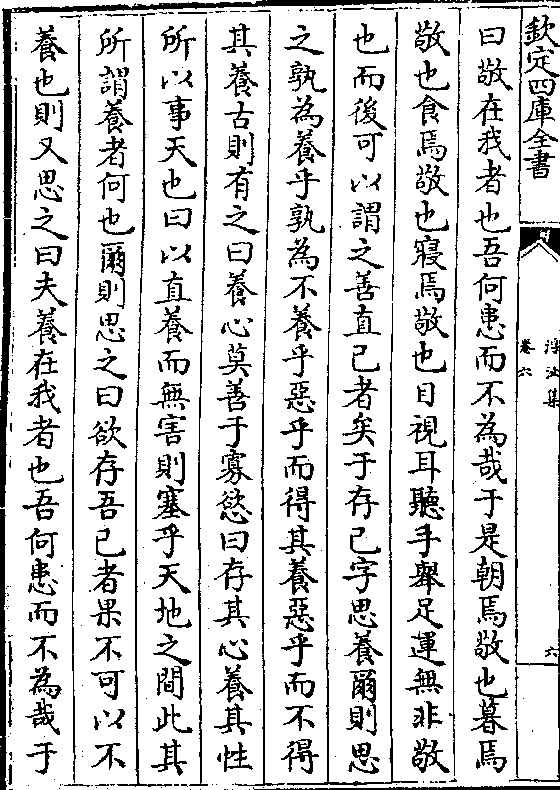 欽定四庫全書
浮沚集
卷六
六
曰敬在我者也吾何患而不為哉于是朝焉敬也暮焉
敬也食焉敬也寝焉敬也目視耳聽手舉足運無非敬
也而後可以謂之善直己者矣于存己字思養爾則思
之孰為養乎孰為不養乎惡乎而得其養惡乎而不得
其養古則有之曰養心莫善于寡慾曰存其心養其性
所以事天也曰以直養而無害則塞乎天地之間此其
所謂養者何也爾則思之曰欲存吾己者果不可以不
養也則又思之曰夫養在我者也吾何患而不為哉于